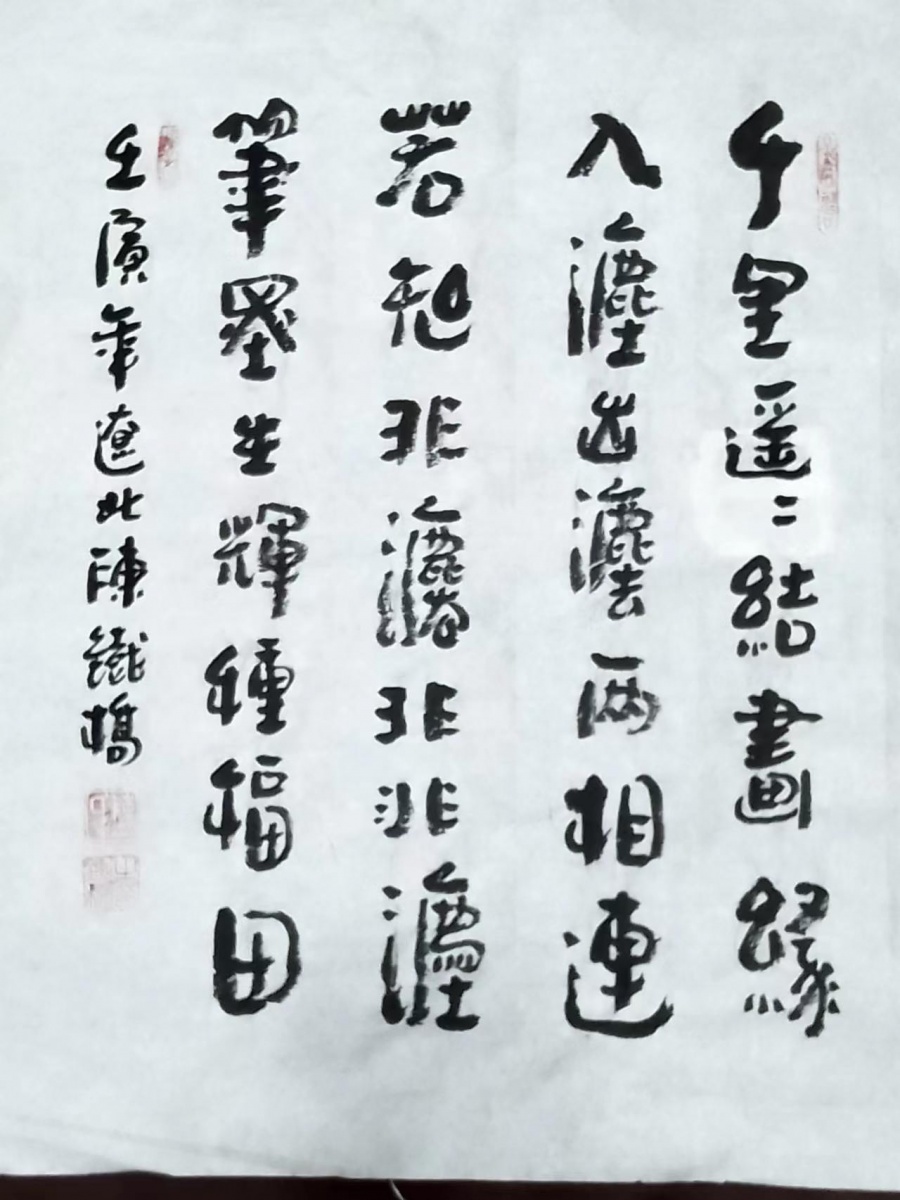 千里遥〻結畫緣
入塵出塵兩相連
若施非塵非非塵
筆墨生輝種福田
壬寅年遼北陳鐵橋